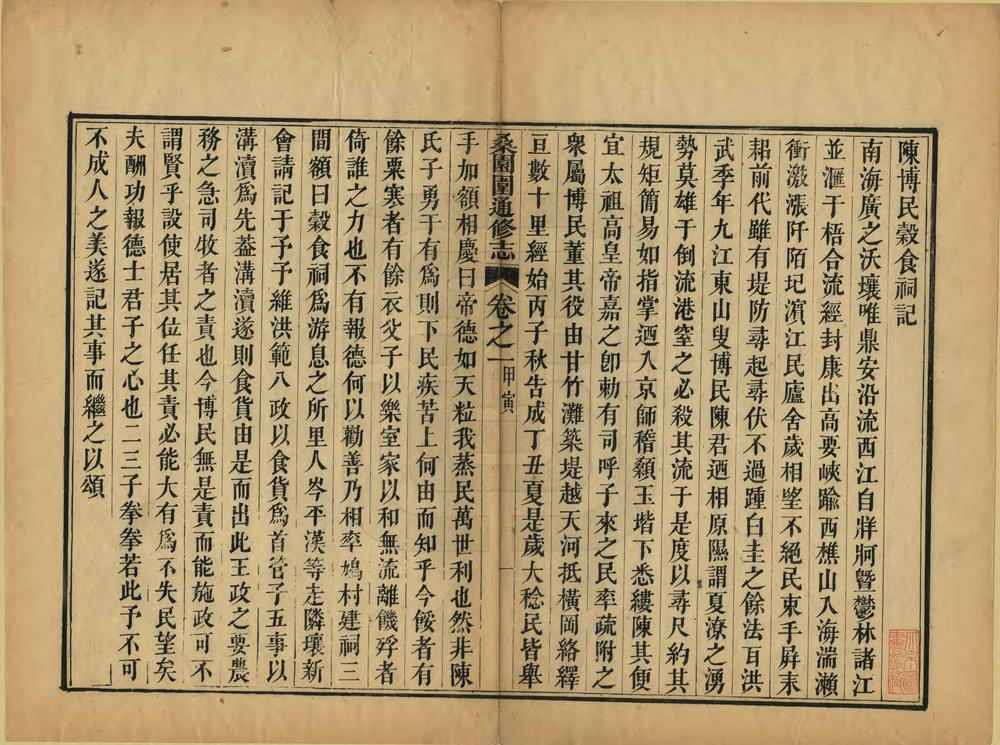 陳博民穀食祠記
南海廣之沃壤唯鼎安沿流西江自牂牁曁鬱林諸江
並滙于梧合流經封康出高要峽踰西樵山入海湍瀨
衝激漲阡陌圮濵江民廬舍歲相望不絕民束手屛耒
耜前代雖有堤防尋起尋伏不過踵白圭之餘法耳洪
武季年九江東山叟博民陳君迺相原隰謂夏潦之湧
勢莫雄于倒流港窒之必殺其流于是度以尋尺約其
規矩簡易如指掌迺入京師稽顙玉堦下悉縷陳其便
宜太祖高皇帝嘉之卽勅有司呼子來之民率疏附之
衆屬博民董其役由甘竹灘築堤越天河抵橫岡絡繹
亘數十里經始丙子秋告成丁丑夏是歲大稔民皆舉
桑園圍通修志 卷之一 甲寅 一
手加額相慶曰帝德如天粒我蒸民萬世利也然非陳
氏子勇于有爲則下民疾苦上何由而知乎今餒者有
餘粟寒者有餘衣父子以樂室家以和無流離饑殍者
倚誰之力也不有報德何以勸善乃相率鳩村建祠三
間額曰穀食祠爲游息之所里人岑平漢等走隣壤新
會請記于予予維洪範八政以食貨爲首管子五事以
溝瀆爲先葢溝瀆遂則食貨由是而出此王政之要農
務之急司牧者之責也今博民無是責而能施政可不
謂賢乎設使居其位任其責必能大有爲不失民望矣
夫酬功報德士君子之心也二三子拳拳若此予不可
不成人之美遂記其事而繼之以頌